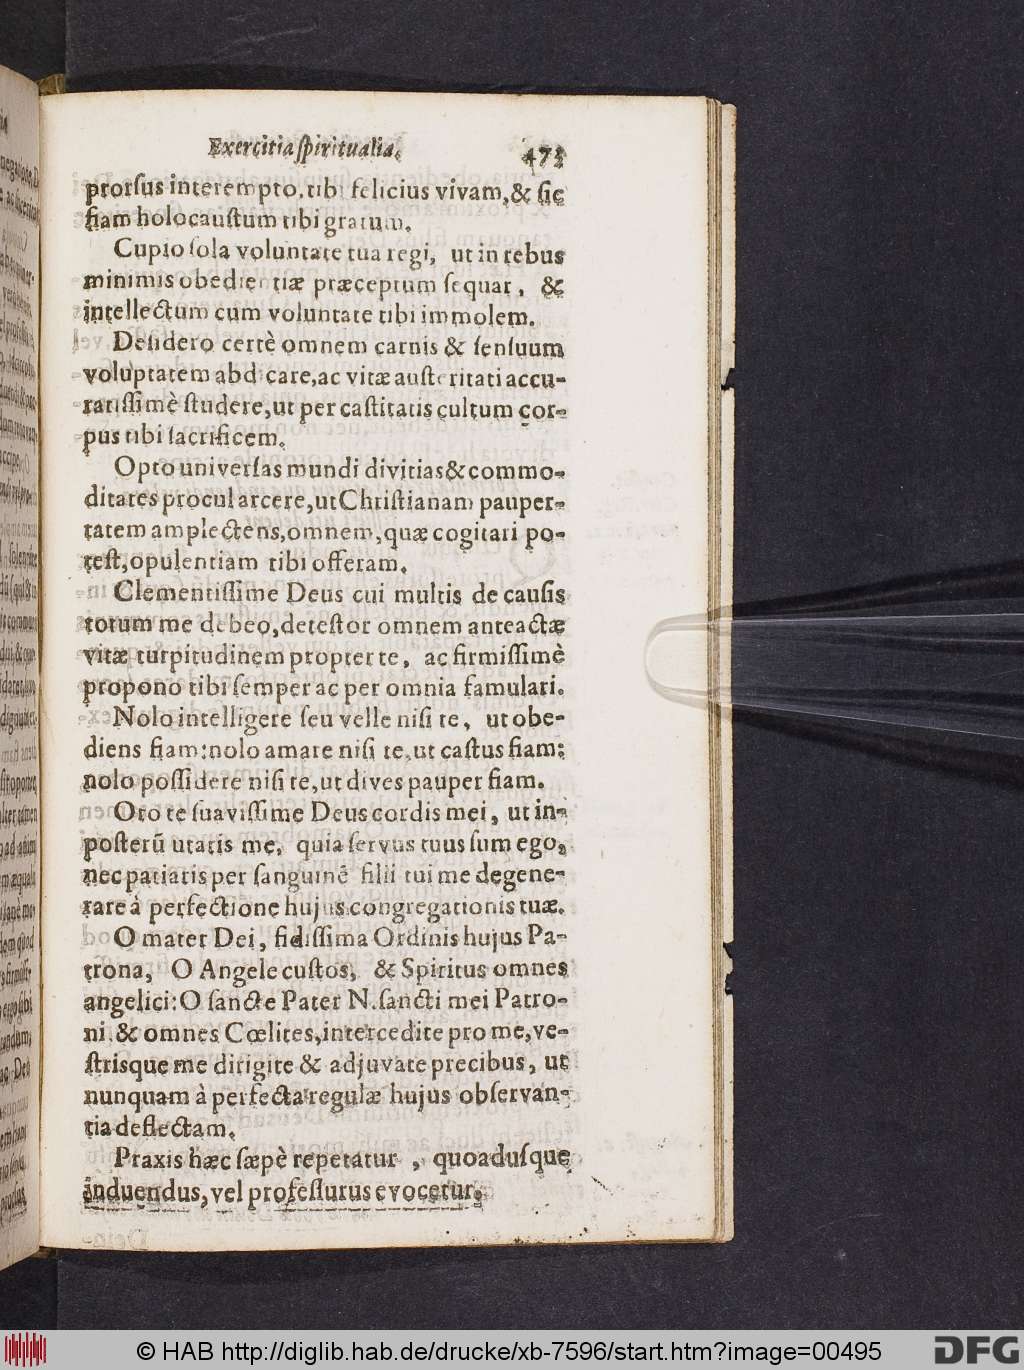 Exercitia spiritualia. 473
prorsus interempto, tibi felicius vivam, & sic
fiam holocaustum tibi gratum.
Cupio sola voluntate tua regi, ut in rebus
minimis obedientiæ præceptum sequar, &
intellectum cum voluntate tibi immolem.
Desidero certè omnem carnis & sensuum
voluptatem abdicare, ac vitæ austeritati accu-
ratissimè studere, ut per castitatis cultum cor-
pus tibi sacrificem.
Opto universas mundi divitias & commo-
ditates procul arcere, ut Christianam pauper-
tatem amplectens, omnem, quæ cogitari po-
test, opulentiam tibi offeram.
Clementissime Deus cui multis de causis
totum me debeo, detestor omnem anteactæ
vitæ turpitudinem propter te, ac firmissimè
propono tibi semper ac per omnia famulari.
Nolo intelligere seu velle nisi te, ut obe-
diens fiam: nolo amare nisi te, ut castus fiam:
nolo possidere nisi te, ut dives pauper fiam.
Oro te suavissime Deus cordis mei, ut in-
posterū utaris me, quia servus tuus sum ego,
nec patiaris per sanguinē filii tui me degene-
rare à perfectione hujus congregationis tuæ.
O mater Dei, fidissima Ordinis hujus Pa-
trona, O Angele custos, & Spiritus omnes
angelici: O sancte Pater N. sancti mei Patro-
ni, & omnes Cœlites, intercedite pro me, ve-
strisque me dirigite & adjuvate precibus, ut
nunquam à perfecta regulæ hujus observan-
tia deflectam.
Praxis hæc sæpè repetatur, quoadusque
induendus, vel professurus evocetur.
© HAB http://diglib.hab.de/drucke/xb-7596/start.htm?image=00495
DFG